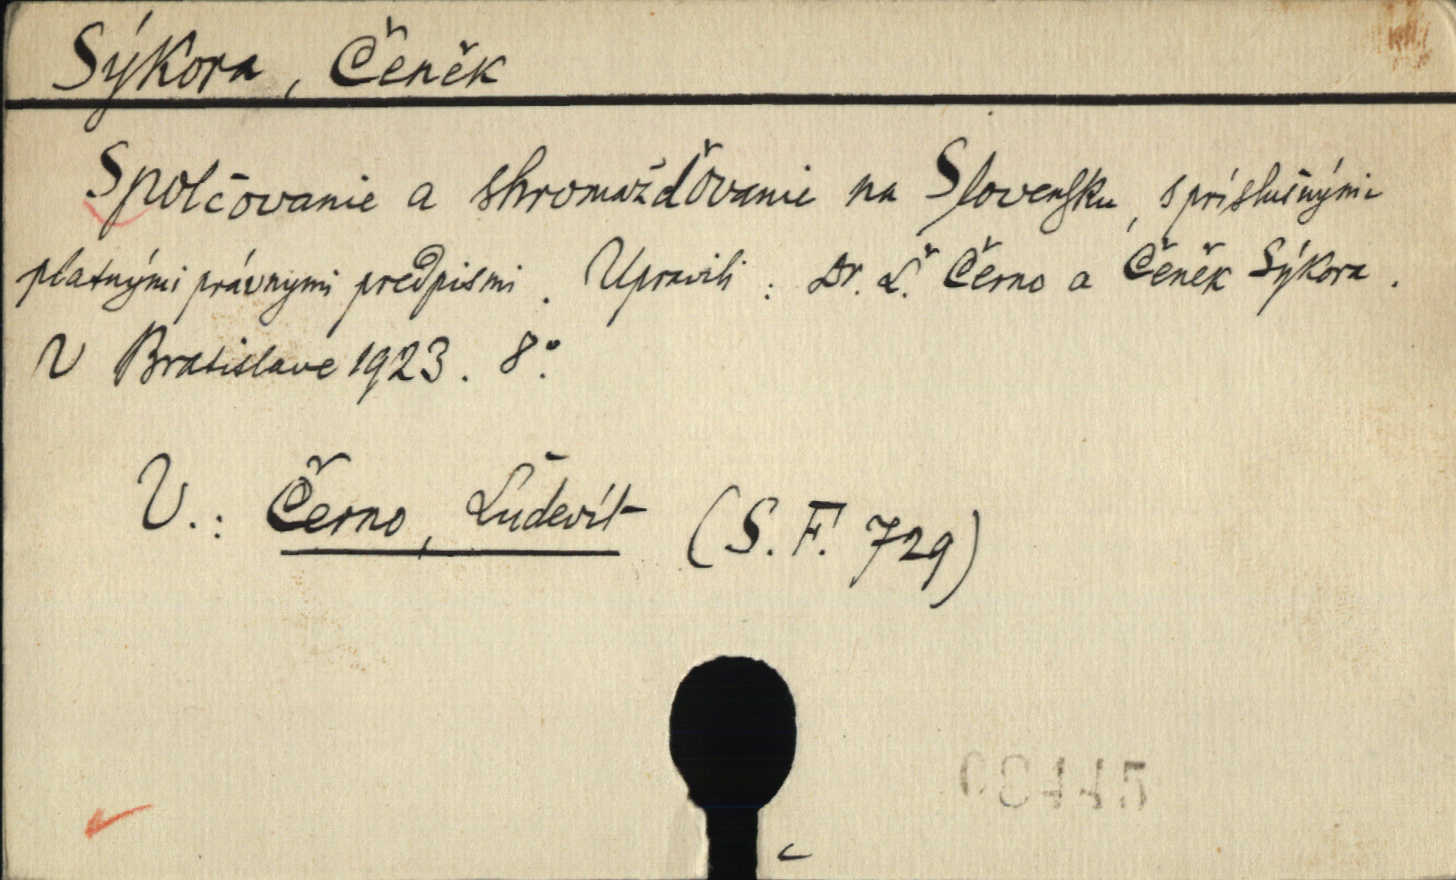 Sýkora, Čeněk
Spolčovanie a shromažďovanie na Slovensku, s príslušnými
platnými právnymi predpismi. Upravili: Dr. Ľ. Černo a Čeněk Sýkora.
V Bratislave 1923. 8°.
V.: Černo, Ľudevít (S. F. 729)